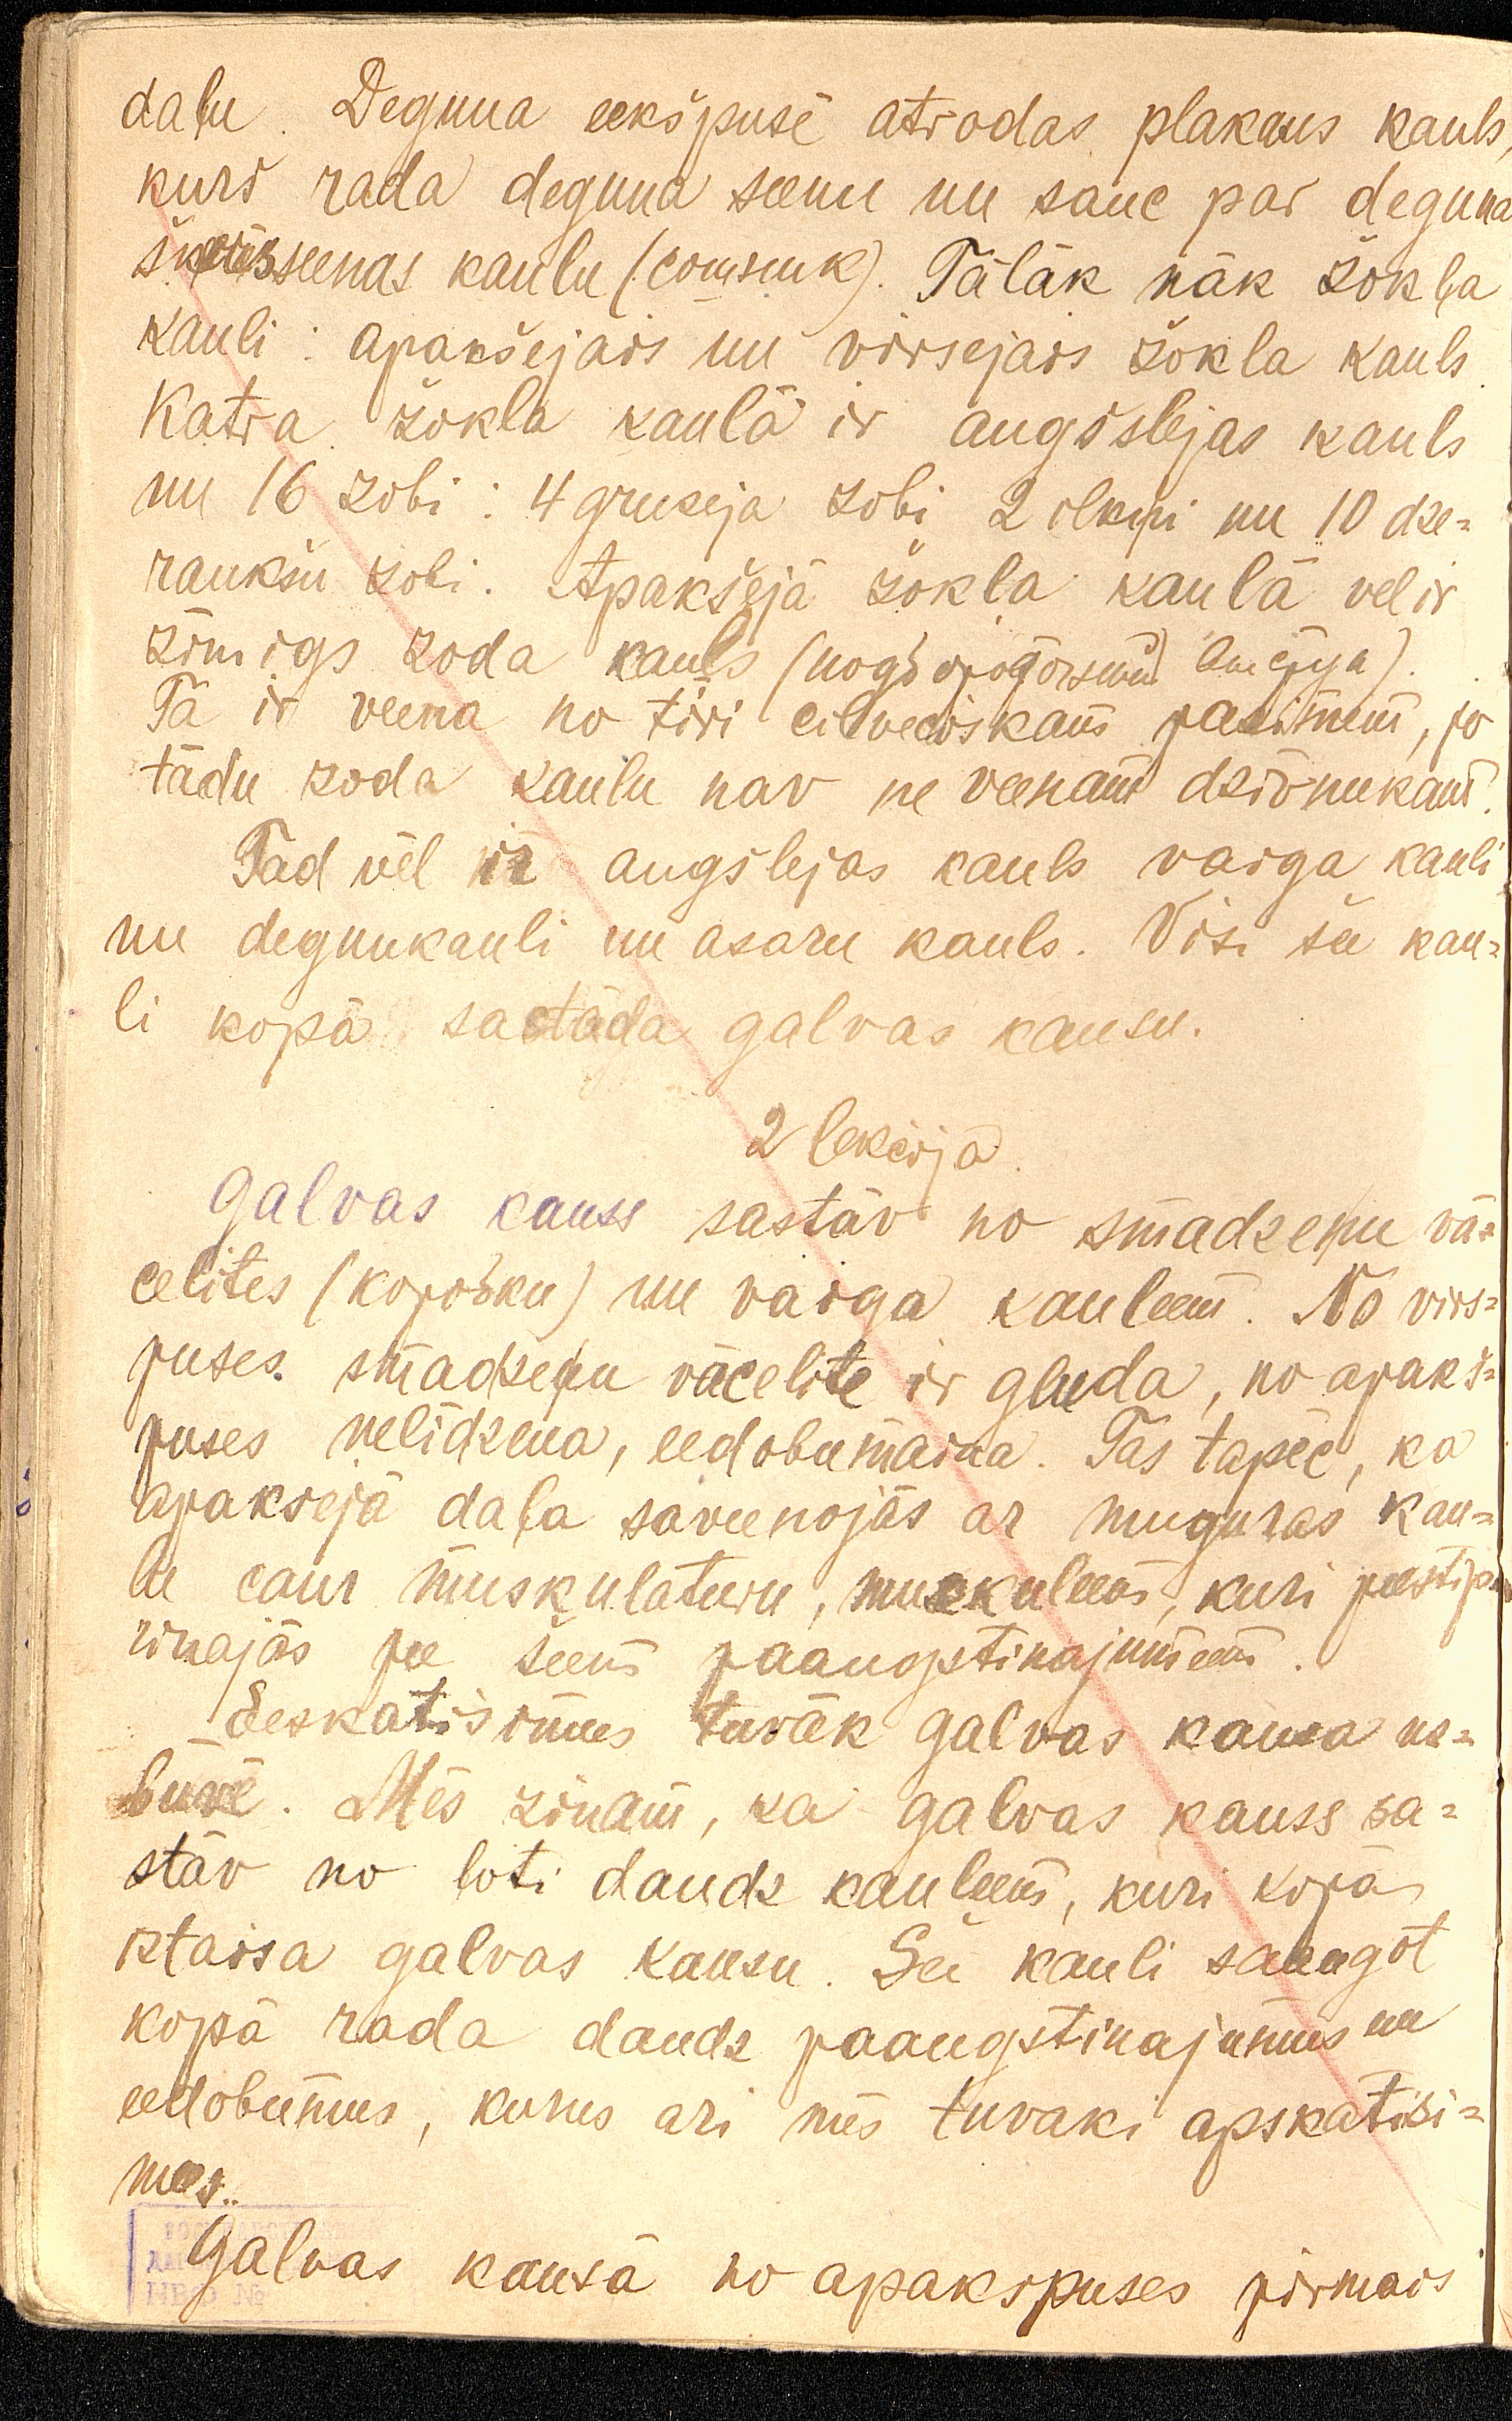 daļu. Deguna eekšpusē atrodas plakans kauls,
kurš rada deguna seenu un sauc par deguna
šķērsseenas kaulu (сошник). Tālāk nāk žokļa
kauli: apakšejais un virsejais žokļa kauls.
Katra žokļa kaulā ir augšslejas kauls
un 16 zobi: 4 greeseja zobi 2 ilkņi un 10 dze=
raukšu zobi. Apakšejā žokļa kaulā vel ir
zimigs zoda kauls (подбородочный
Tā ir veena no tiri cilveciskam pazimem, jo
tādu zoda kaulu nav ne veenam dzivneekam.
Tad vēl ir augslejas kauls vaiga kauli
un degunkauli un asaru kauls. Visi šee kau=
li kopā sastāda galvas kausu.
2 lekcija.
Galvas kauss sastāv no smadzeņu vā=
celites (коробки) un vaiga kauleem. No virs=
puses smadzeņu vācelite ir gluda, no apakš=
puses nelidzena, eedobumaina. Tas tapēc, ka
apaksejā daļa saveenojās ar muguras kau=
lu caur muskulaturu, muskuleem, kuri peestip=
rinajās pee šeem paaugstinajumeem.
Eeskatisimees tuvāk galvas kausa uz=
būvē. Mēs zinam, ka galvas kauss sa=
stāv no loti daudz kauleem, kuri kopā
iztaisa galvas kausu. Šee kauli saaugot
kopā rada daudz paaugstinajumus un
eedobumus, kurus ari mēs tuvaki apskatisi=
mees.
Galvas kausā no apakspuses pirmais